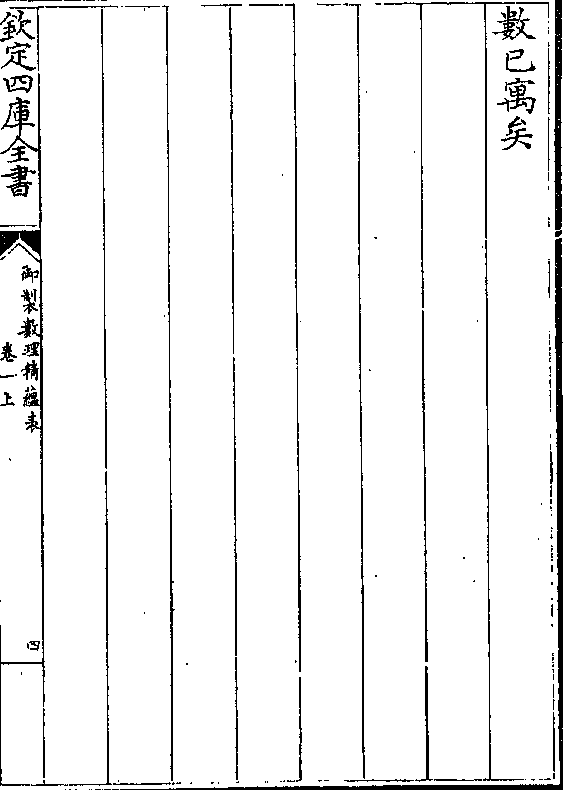 數已寓矣
欽定四庫全書
御製數理精藴表
卷一上
四